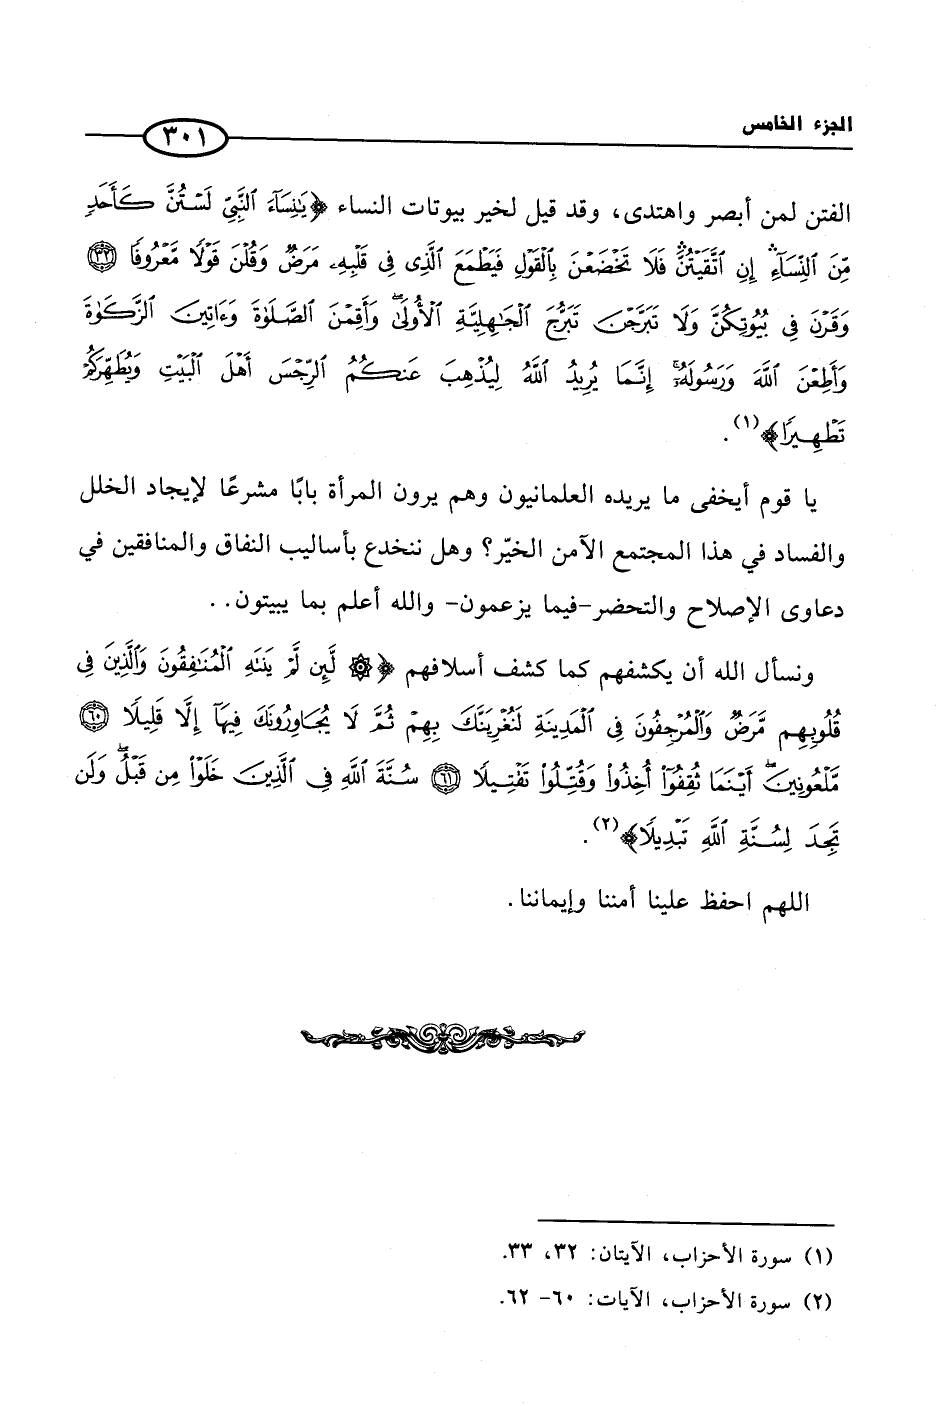 الجزء الخامس
٣٠١
الفتن لمن أبصر واهتدى، وقد قيل لخير بيوتات النساء ﴿يَٰنِسَآءَ ٱلنَّبِيِّ لَسۡتُنَّ كَأَحَدٖ
مِّنَ ٱلنِّسَآءِ إِنِ ٱتَّقَيۡتُنَّۚ فَلَا تَخۡضَعۡنَ بِٱلۡقَوۡلِ فَيَطۡمَعَ ٱلَّذِي فِي قَلۡبِهِۦ مَرَضٞ وَقُلۡنَ قَوۡلٗا مَّعۡرُوفٗا ٣٢
وَقَرۡنَ فِي بُيُوتِكُنَّ وَلَا تَبَرَّجۡنَ تَبَرُّجَ ٱلۡجَٰهِلِيَّةِ ٱلۡأُولَىٰۖ وَأَقِمۡنَ ٱلصَّلَوٰةَ وَءَاتِينَ ٱلزَّكَوٰةَ
وَأَطِعۡنَ ٱللَّهَ وَرَسُولَهُۥٓۚ إِنَّمَا يُرِيدُ ٱللَّهُ لِيُذۡهِبَ عَنكُمُ ٱلرِّجۡسَ أَهۡلَ ٱلۡبَيۡتِ وَيُطَهِّرَكُمۡ
تَطۡهِيرٗا﴾(١).
يا قوم أيخفى ما يريده العلمانيون وهم يرون المرأة بابًا مشرعًا لإيجاد الخلل
والفساد في هذا المجتمع الآمن الخيّر؟ وهل ننخدع بأساليب النفاق والمنافقين في
دعاوى الإصلاح والتحضر -فيما يزعمون- والله أعلم بما يبيتون..
ونسأل الله أن يكشفهم كما كشف أسلافهم ﴿۞ لَّئِن لَّمۡ يَنتَهِ ٱلۡمُنَٰفِقُونَ وَٱلَّذِينَ فِي
قُلُوبِهِم مَّرَضٞ وَٱلۡمُرۡجِفُونَ فِي ٱلۡمَدِينَةِ لَنُغۡرِيَنَّكَ بِهِمۡ ثُمَّ لَا يُجَاوِرُونَكَ فِيهَآ إِلَّا قَلِيلٗا ٦٠
مَّلۡعُونِينَۖ أَيۡنَمَا ثُقِفُوٓاْ أُخِذُواْ وَقُتِّلُواْ تَقۡتِيلٗا ٦١ سُنَّةَ ٱللَّهِ فِي ٱلَّذِينَ خَلَوۡاْ مِن قَبۡلُۖ وَلَن
تَجِدَ لِسُنَّةِ ٱللَّهِ تَبۡدِيلٗا﴾(٢).
اللهم احفظ علينا أمننا وإيماننا.
(١) سورة الأحزاب، الآيتان: ٣٢، ٣٣.
(٢) سورة الأحزاب، الآيات: ٦٠- ٦٢.